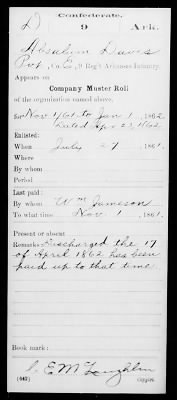 Confederate.
D 9 Ark.
Absalom Davis
Pvt, Co. E, 9 Reg't Arkansas Infantry.
Appears on
Company Muster Roll
of the organization named above,
for Nov 1/61 to Jan 1, 1862.
Dated Apr 23, 1862
Enlisted:
When July 27, 1861.
Where
By whom
Period
Last paid:
By whom Wm Jameson
To what time Nov 1, 1861.
Present or absent
Remarks: Discharged the 17
of April 1862 has been
paid up to that time
Book mark:
E McLaughlin
(642) Copyist.